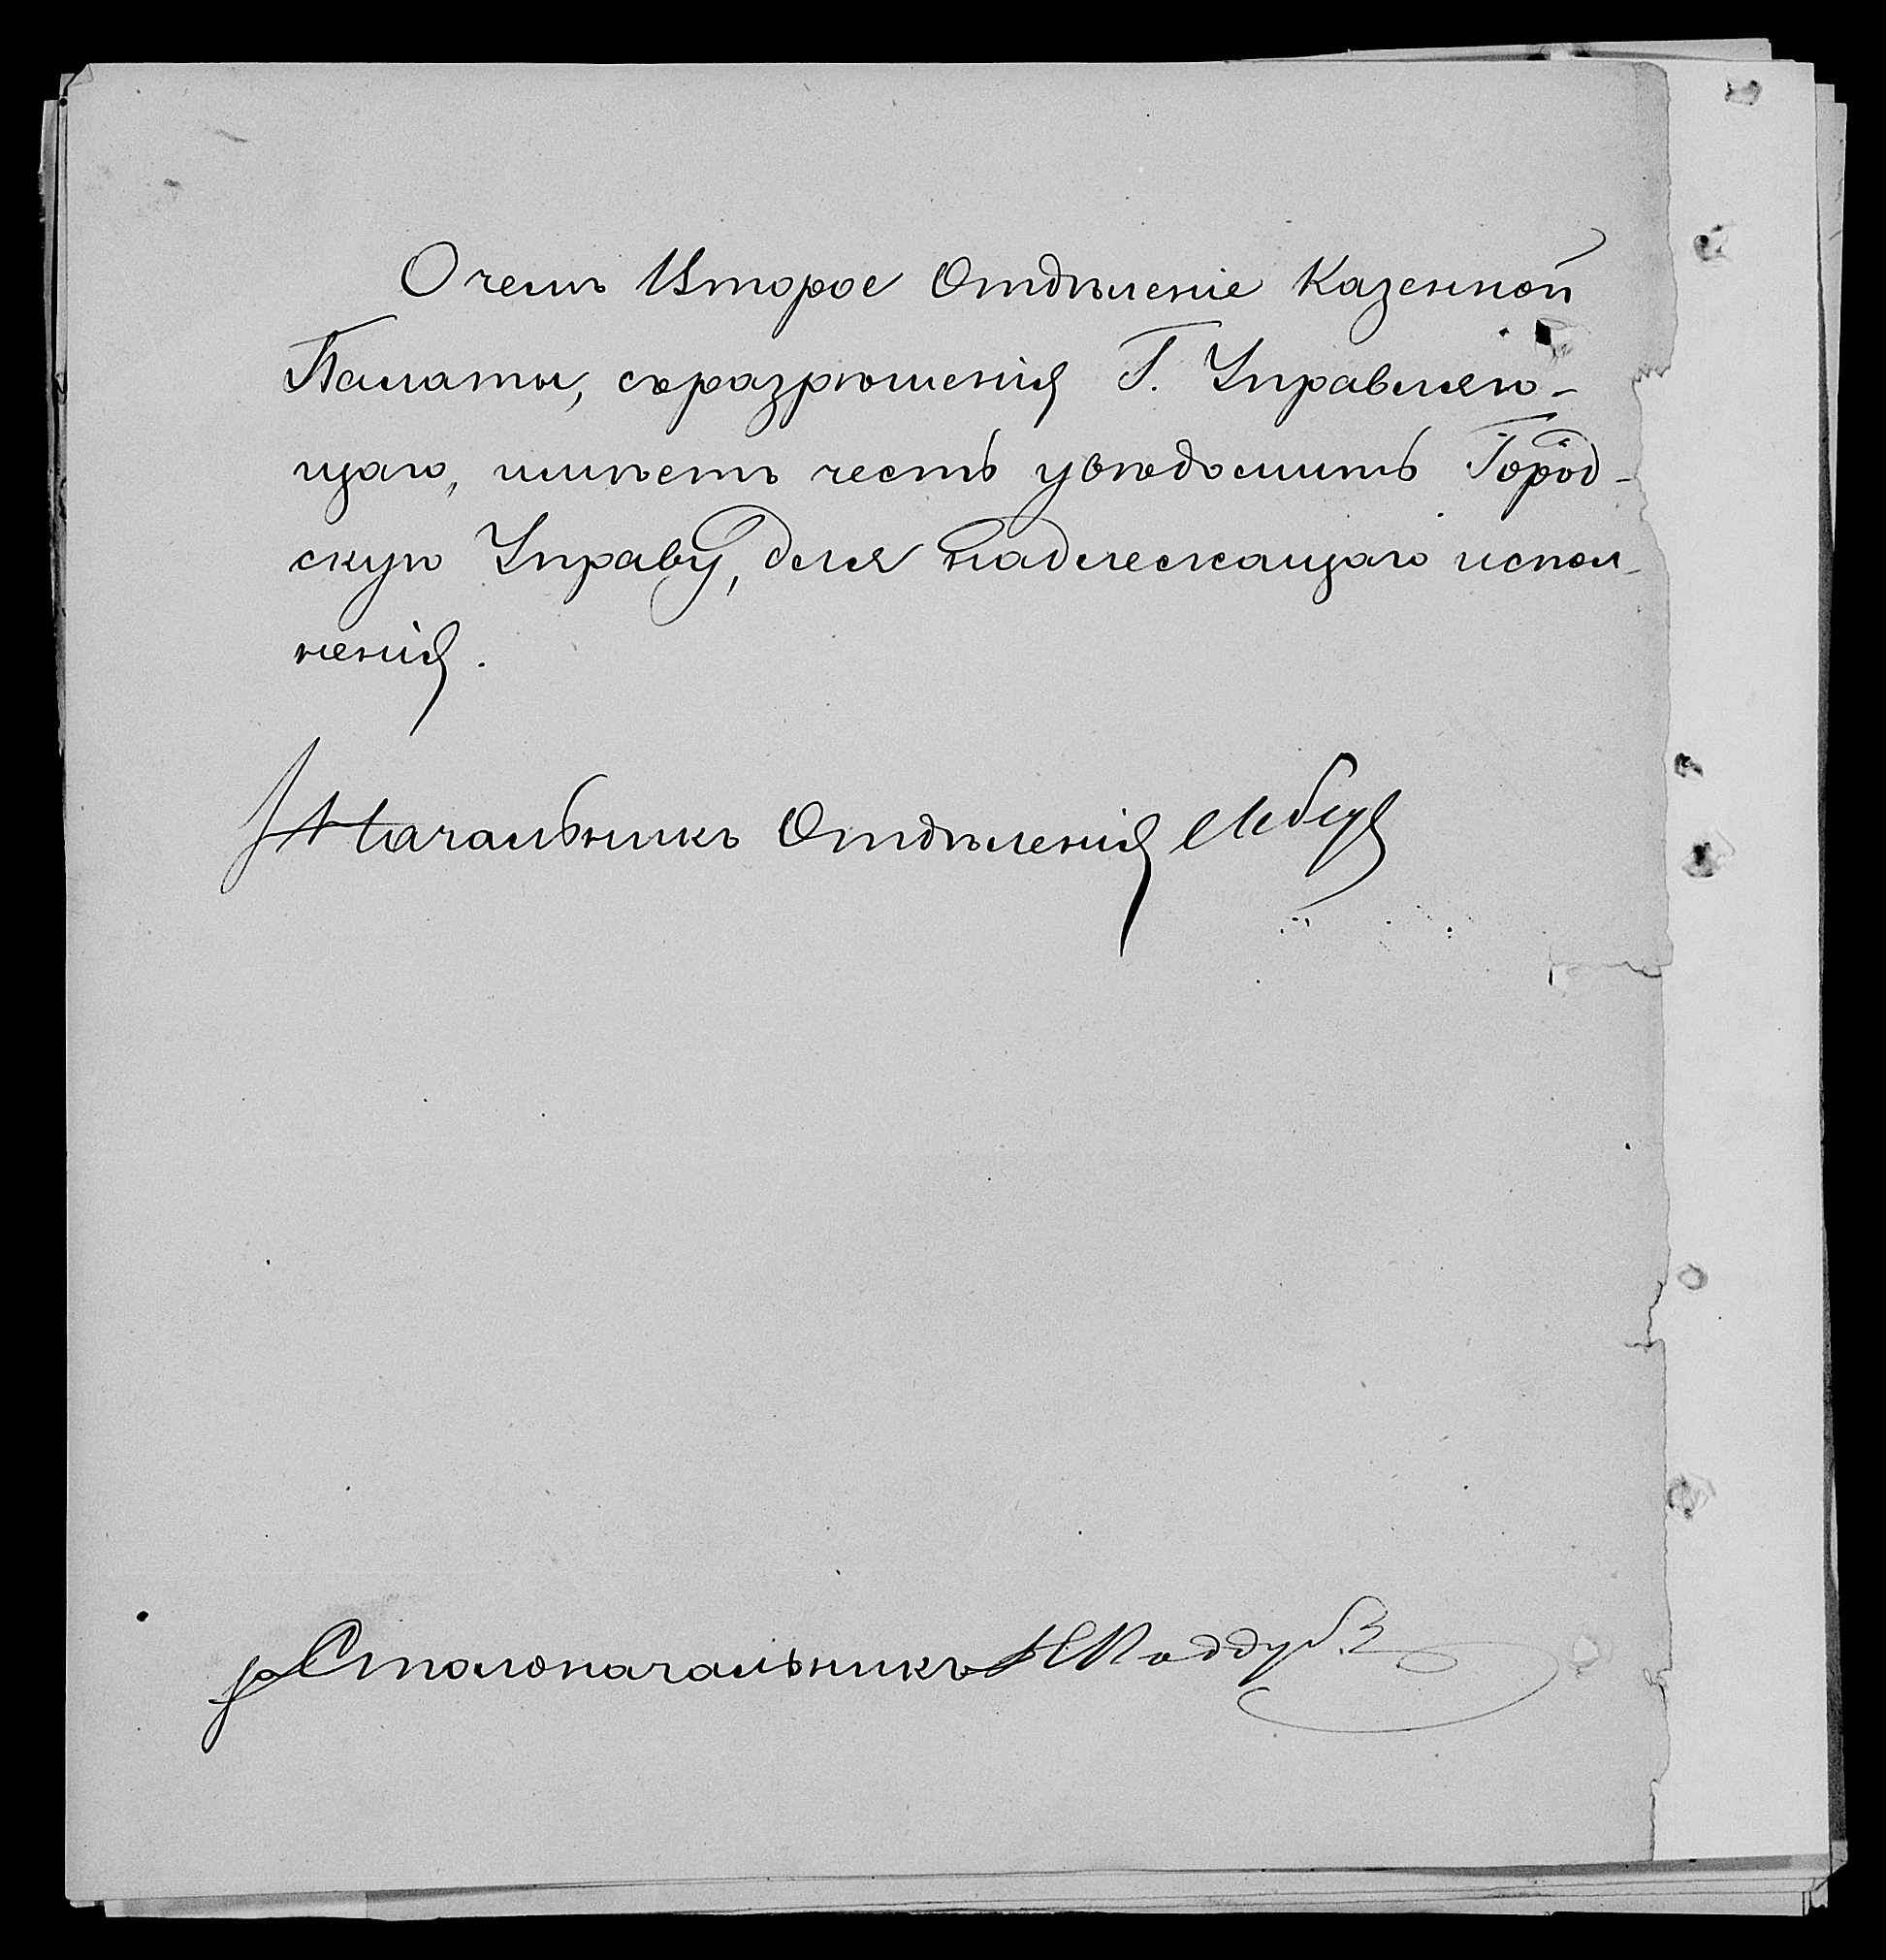 О чемъ Второе Отдѣленіе Казенной
Палаты, съ разрѣшенія Г. Управляю-
щаго, имѣетъ честь увѣдомить Город-
скую Управу, для надлежащаго испол-
ненія.
Начальникъ Отдѣленія
Столоначальникъ